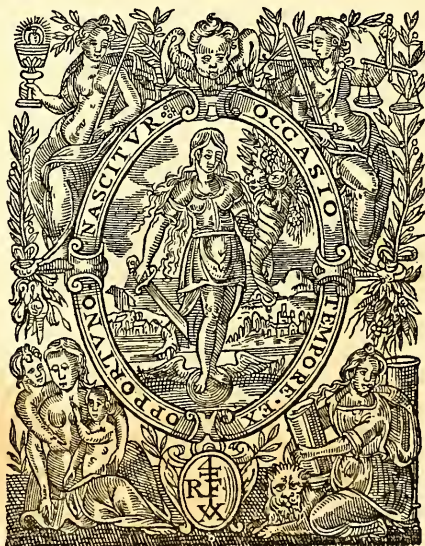 OCCASIO
TEMPORE · EX
OPPORTVNO
NASCITVR
RF